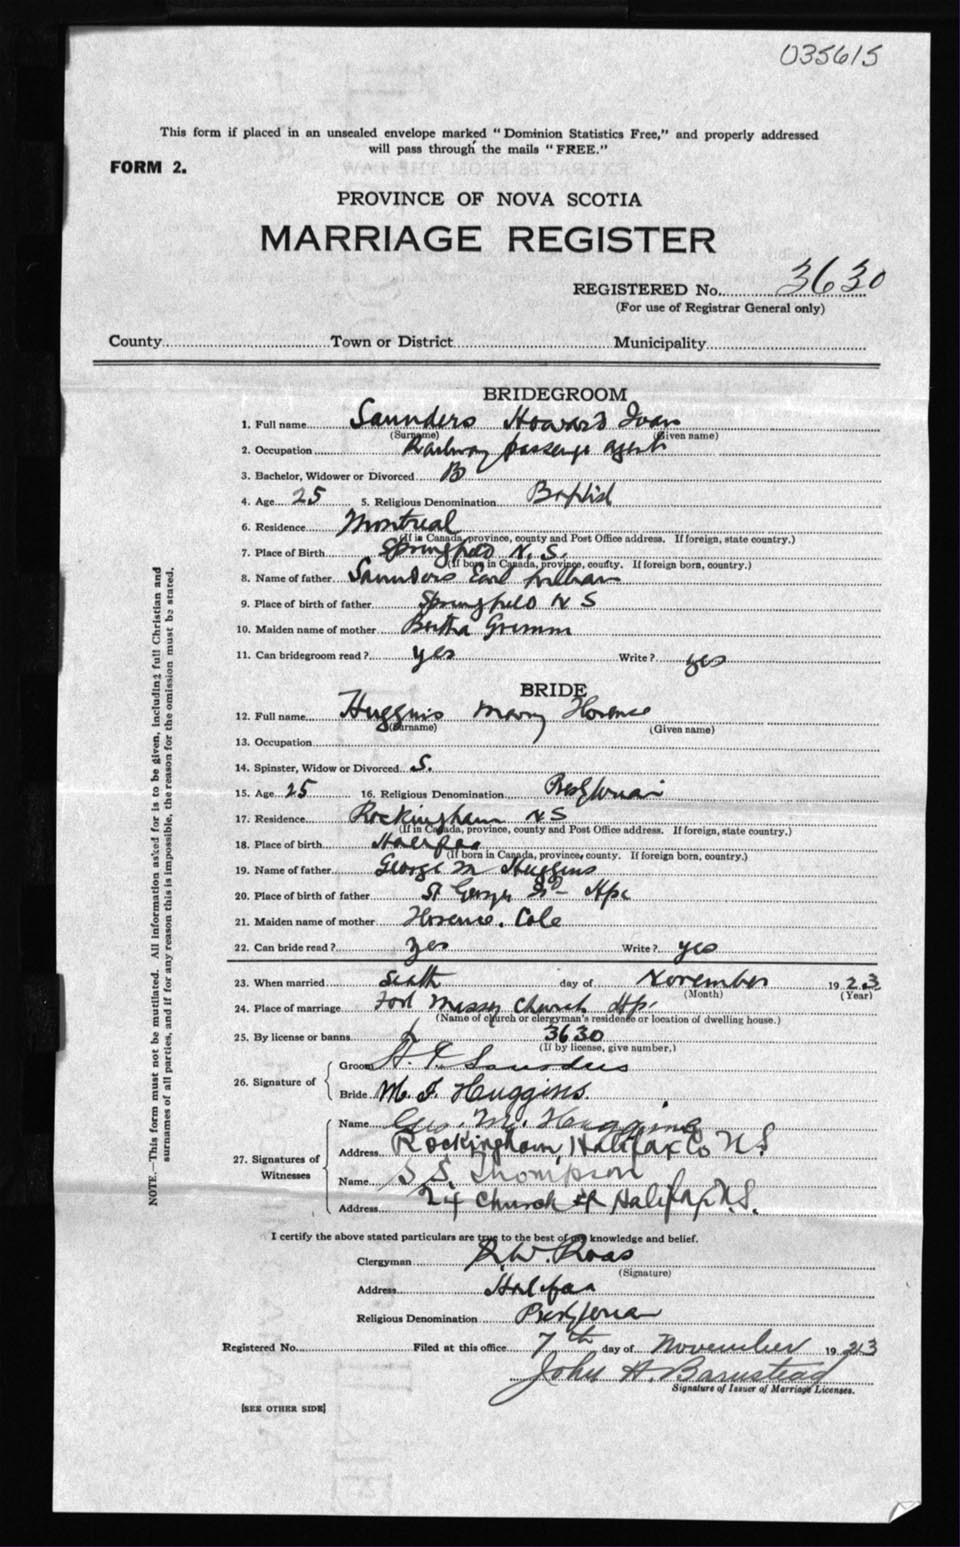 035615
This form if placed in an unsealed envelope marked "Dominion Statistics Free," and properly addressed
will pass through the mails "FREE."
FORM 2.
PROVINCE OF NOVA SCOTIA
MARRIAGE REGISTER
REGISTERED No. 3630
(For use of Registrar General only)
County Town or District Municipality
BRIDEGROOM
1. Full name Saunders Howard Ivan
(Surname) (Given name)
2. Occupation Railway passenge agent
3. Bachelor, Widower or Divorced B
4. Age 25 5. Religious Denomination Baptist
6. Residence Montreal
(If in Canada, province, county and Post Office address. If foreign, state country.)
7. Place of Birth Springfield N. S.
(If born in Canada, province, county. If foreign born, country.)
8. Name of father Saunders Earl William
9. Place of birth of father Springfield N S
10. Maiden name of mother Bertha Grimm
11. Can bridegroom read? yes Write? yes
BRIDE
12. Full name Huggins Mary Florence
(Surname) (Given name)
13. Occupation
14. Spinster, Widow or Divorced S.
15. Age 25 16. Religious Denomination Presbyterian
17. Residence Rockingham NS
(If in Canada, province, county and Post Office address. If foreign, state country.)
18. Place of birth Halifax
(If born in Canada, province, county. If foreign born, country.)
19. Name of father George M Huggins
20. Place of birth of father St Georges Hfx
21. Maiden name of mother Florence. Cole
22. Can bride read? yes Write? yes
23. When married Sixth day of November 1923
(Month) (Year)
24. Place of marriage Fort Massey Church Hfx
(Name of church or clergyman's residence or location of dwelling house.)
25. By license or banns 3630
(If by license, give number.)
26. Signature of
Groom H. I. Saunders
Bride M. F. Huggins.
27. Signatures of Witnesses
Name Geo. M. Huggins
Address Rockingham, Halifax Co N.S.
Name S S. Thompson
Address 24 Church St Halifax N.S.
I certify the above stated particulars are true to the best of my knowledge and belief.
Clergyman R. W. Ross
(Signature)
Address Halifax
Religious Denomination Presbyterian
Registered No. Filed at this office 7th day of November 1923
John A. Barnstead
Signature of Issuer of Marriage Licenses.
[SEE OTHER SIDE]
NOTE.—This form must not be mutilated. All information asked for is to be given, including full Christian and
surnames of all parties, and if for any reason this is impossible, the reason for the omission must be stated.